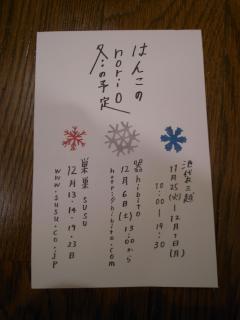 はんこの
norio
冬の予定
池袋三越
11月25日(火)―12月1日(月)
10:00―19:30
hibito
12月6日(土) 13:00から
http://hibito.com
巣巣 susu
12月13・14・19・23日
www.susu.co.jp